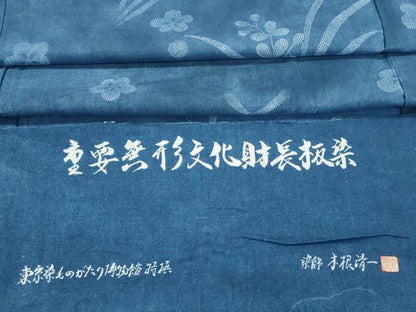 重要無形文化財長板染
東京染ものがたり博物館 特撰
染師 本根清一